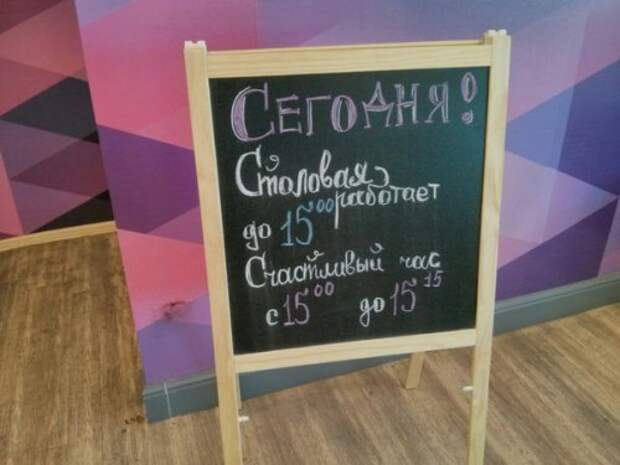 СЕГОДНЯ!
Столовая
работает
до 15⁰⁰
Счастливый час
с 15⁰⁰ до 15¹⁵